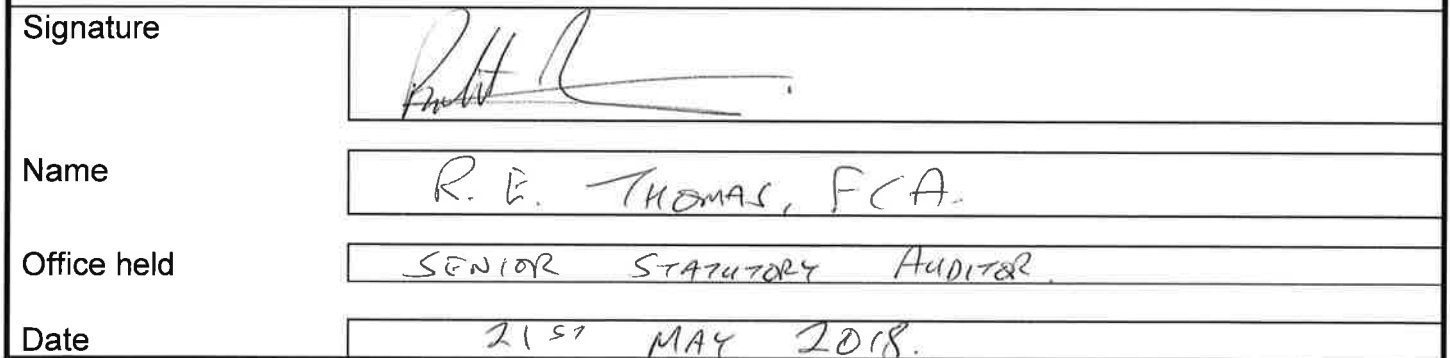 Signature
Name R. E. THOMAS, FCA.
Office held SENIOR STATUTORY AUDITOR.
Date 21ST MAY 2018.